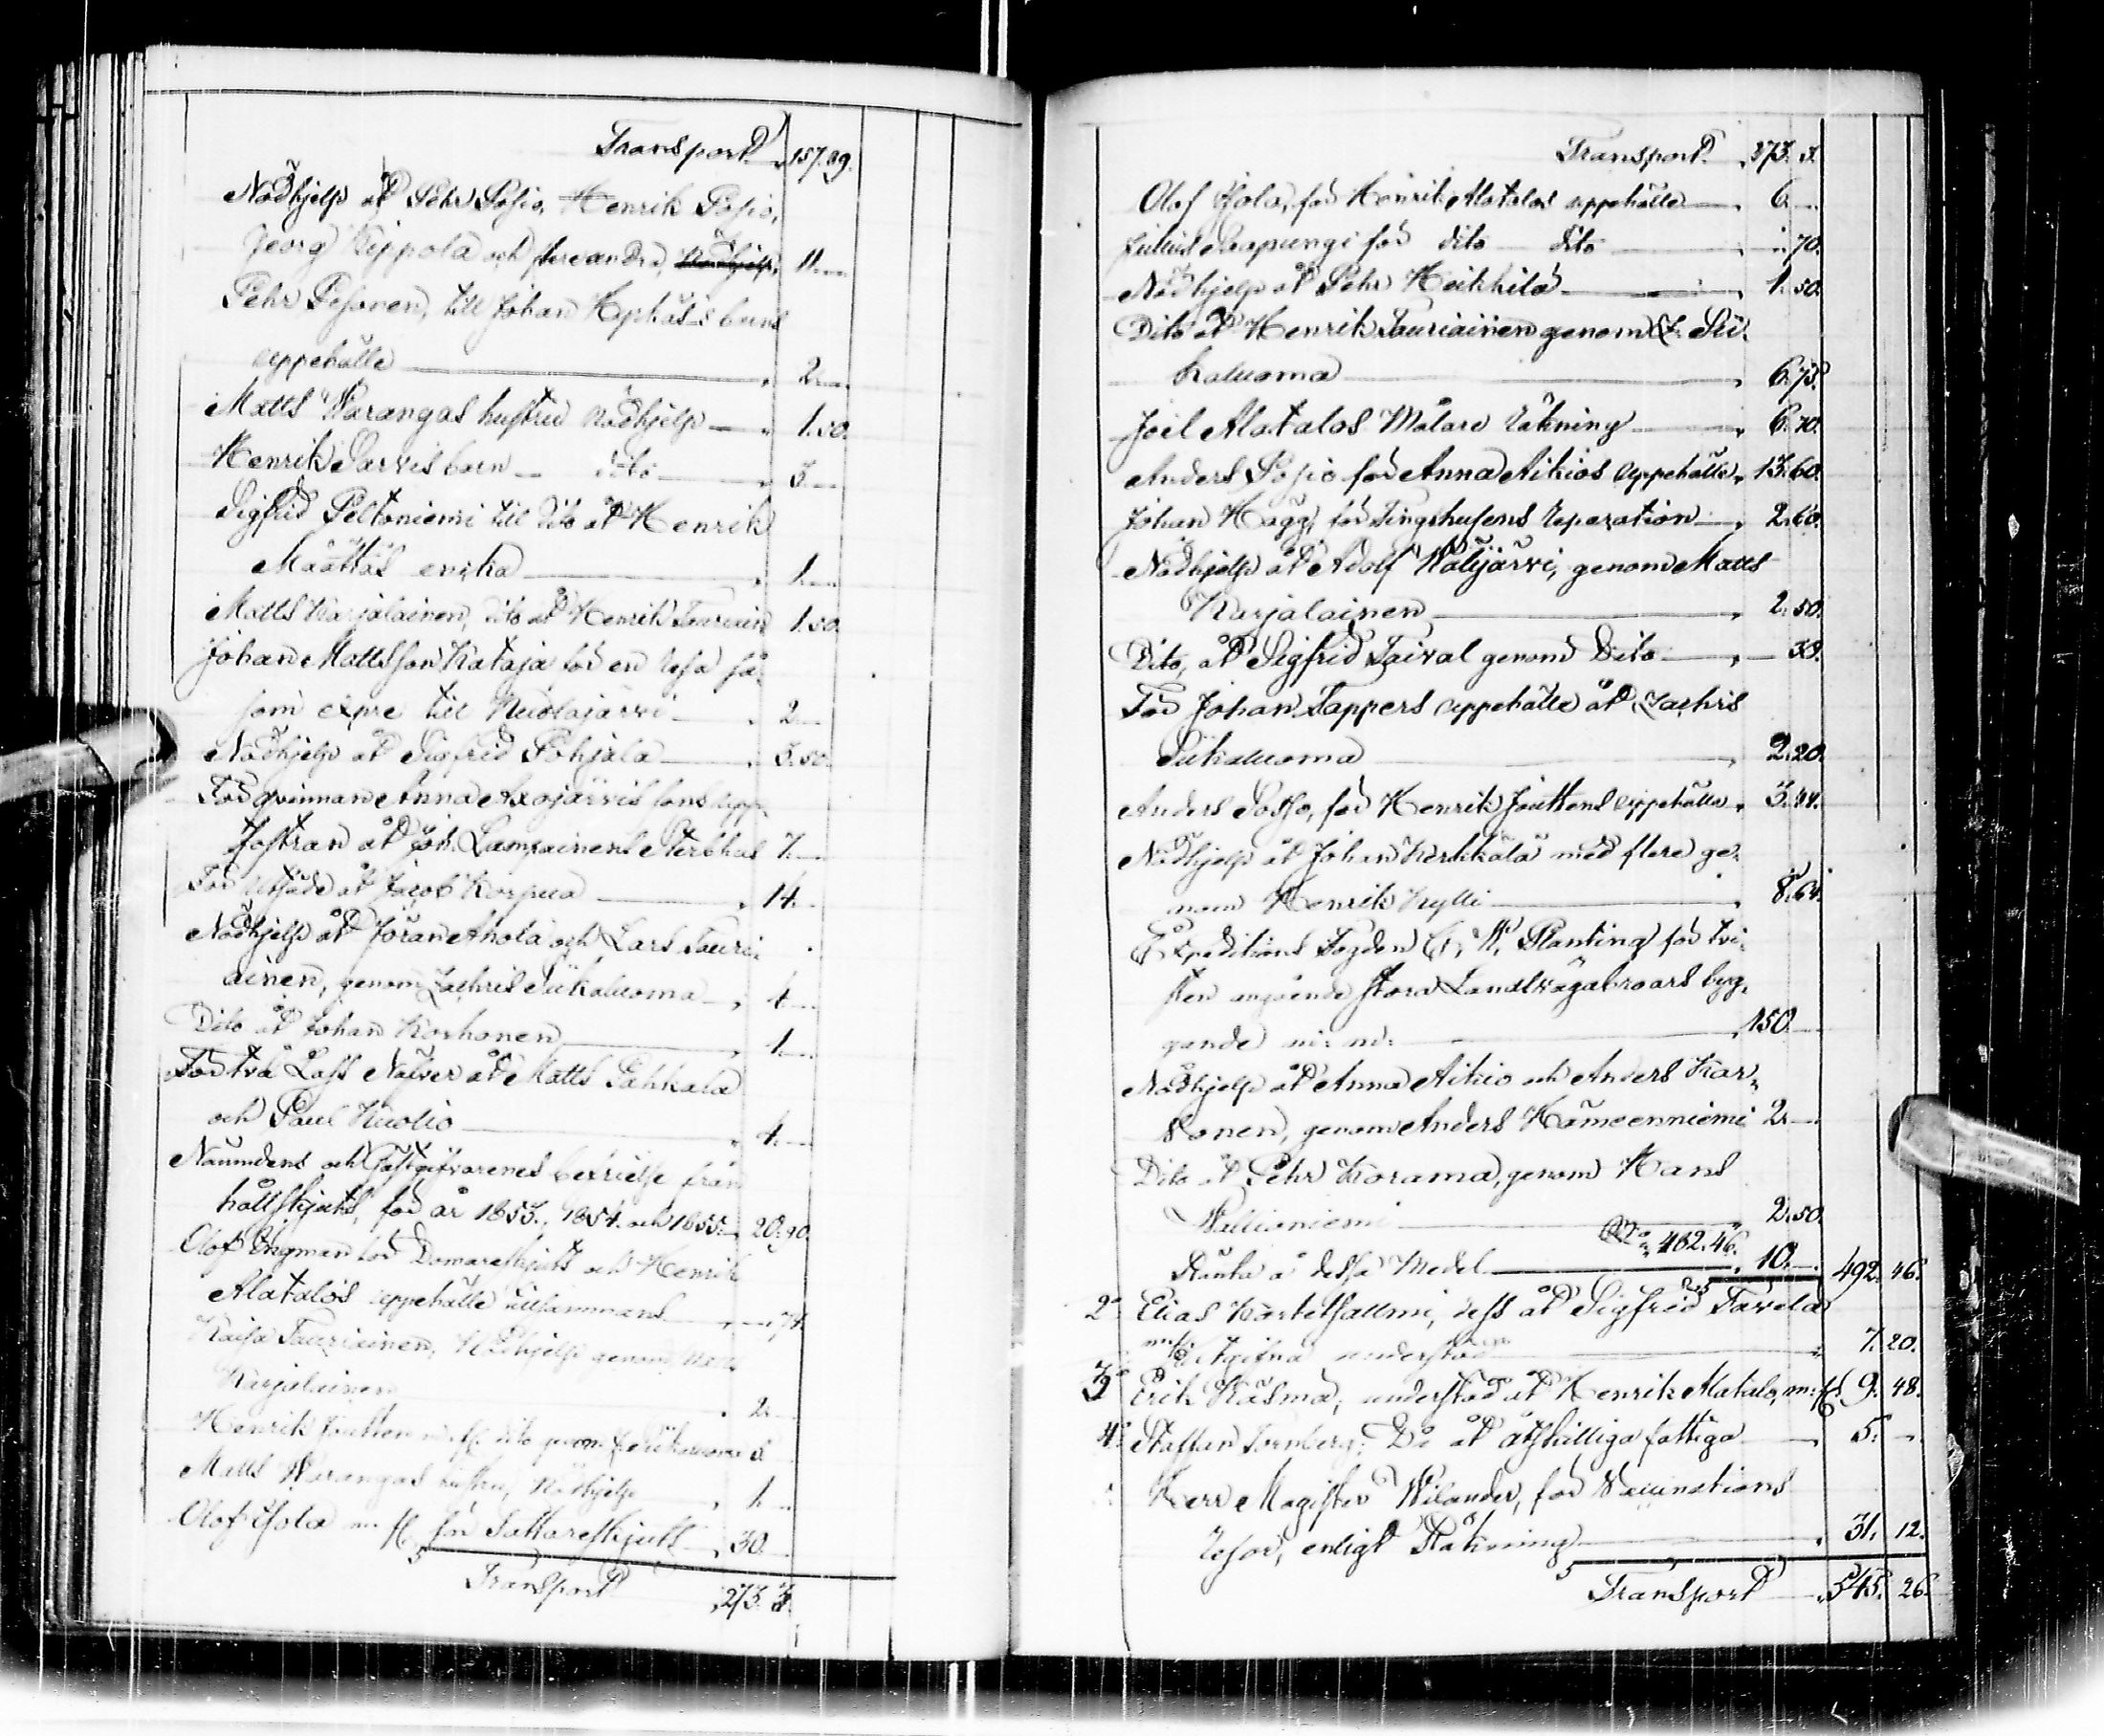 Transport 157.89.
Nödhjelp åt Pehr Posio, Henrik Posio,
Georg Kippola och flere andra, Nödhjelp, 11.—
Pehr Pesonen, till Johan barns
uppehälle — 2.—
Matts Warangas hustru Nödhjelp — 1.50.
Henrik Sarvis barn — dito — 3.—
Sigfrid Peltoniemi till dito åt Henrik
Määttäs enka — 1.—
Matts Karjalainen, dito åt Henrik Tauriain 1.50.
Johan Mattsson Kataja för en resa så-
som expre till Kuolajärvi — 2.—
Nödhjelp åt Sigfrid Pohjala — 3.50.
För qvinnan Anna Axojärvis sons upp-
fostran åt Joh. Lampainens Sterbhus 7.—
För åt Jacob Korpua — 14.—
Nödhjelp åt Jöran Ahola och Lars Tauri-
ainen, genom Zachris Siikaluoma — 4.—
Dito åt Johan Korhonen — 1.—
För två Lass Näfver åt Matts Pahkala
och Paul Kuolio — 4.—
Nämndens och Gästgifvarenes befrielse från
hållskjuts, för år 1853., 1854. och 1855. — 20.90.
Olof Engman för Domareskjuts och Henrik
Alatalos uppehälle tillsammans — 74.
Kaisa Tauriainen, Nödhjelp genom
Karjalainen — 2.—
Henrik Jutton m. fl. dito genom Z. Siikaluoma 5
Matts Warangas hustru, Nödhjelp — 1.—
Olof Isola m. fl. för Tattareskjuts — 30.—
Transport 273. 3.
Transport 273. 3.
Olof Isola, för Henrik Alatalos uppehälle — 6.—
Julius Saapungi för dito dito — 70.
Nödhjelp åt Pehr Heikkilä — 1.50.
Dito åt Henrik Tauriainen genom Z. Sii-
kaluoma — 6.75.
Joel Alatalos Målare räkning — 6.70.
Anders Posio för Anna Aikios uppehälle, 13.60.
Johan Hägg, för Tingshusens reparation — 2.60.
Nödhjelp åt Adolf Wälijärvi, genom Matts
Karjalainen — 2.50.
Dito, åt Sigfrid Taival genom Dito — 30.
För Johan Tappers uppehälle åt Zachris
Siikaluoma — 2.20.
Anders Posio, för Henrik Juuttons uppehälle, 3.44.
Nödhjelp åt Johan Kerkkälä med flere ge-
nom Henrik Kylli — 8.64.
Expeditions Fogden C. W. Planting för tvi-
sten angående stora Landsvägabroars byg-
gande m: m: — 150.—
Nödhjelp åt Anna Aikio och Anders Kar-
vonen, genom Anders Hämeenniemi 2.—
Dito åt Pehr Korama, genom Hans
— 2.50.
482.46.
Ränta å dessa Medel — 10.— 492. 46.
2º Elias Karhelsallmi, dess åt Sigfrid Tavela
m. fl. utgifna understöd — 7. 20.
3º Erik Käsmä, understöd åt Henrik Alatalo, m. fl. 9. 48.
4º Staffan Tornberg, Dº åt åtskilliga fattiga — 5. —
Herr Magister Wilander, för Vaccinations
resor, enligt Räkning — 31. 12.
Transport — 545. 26.